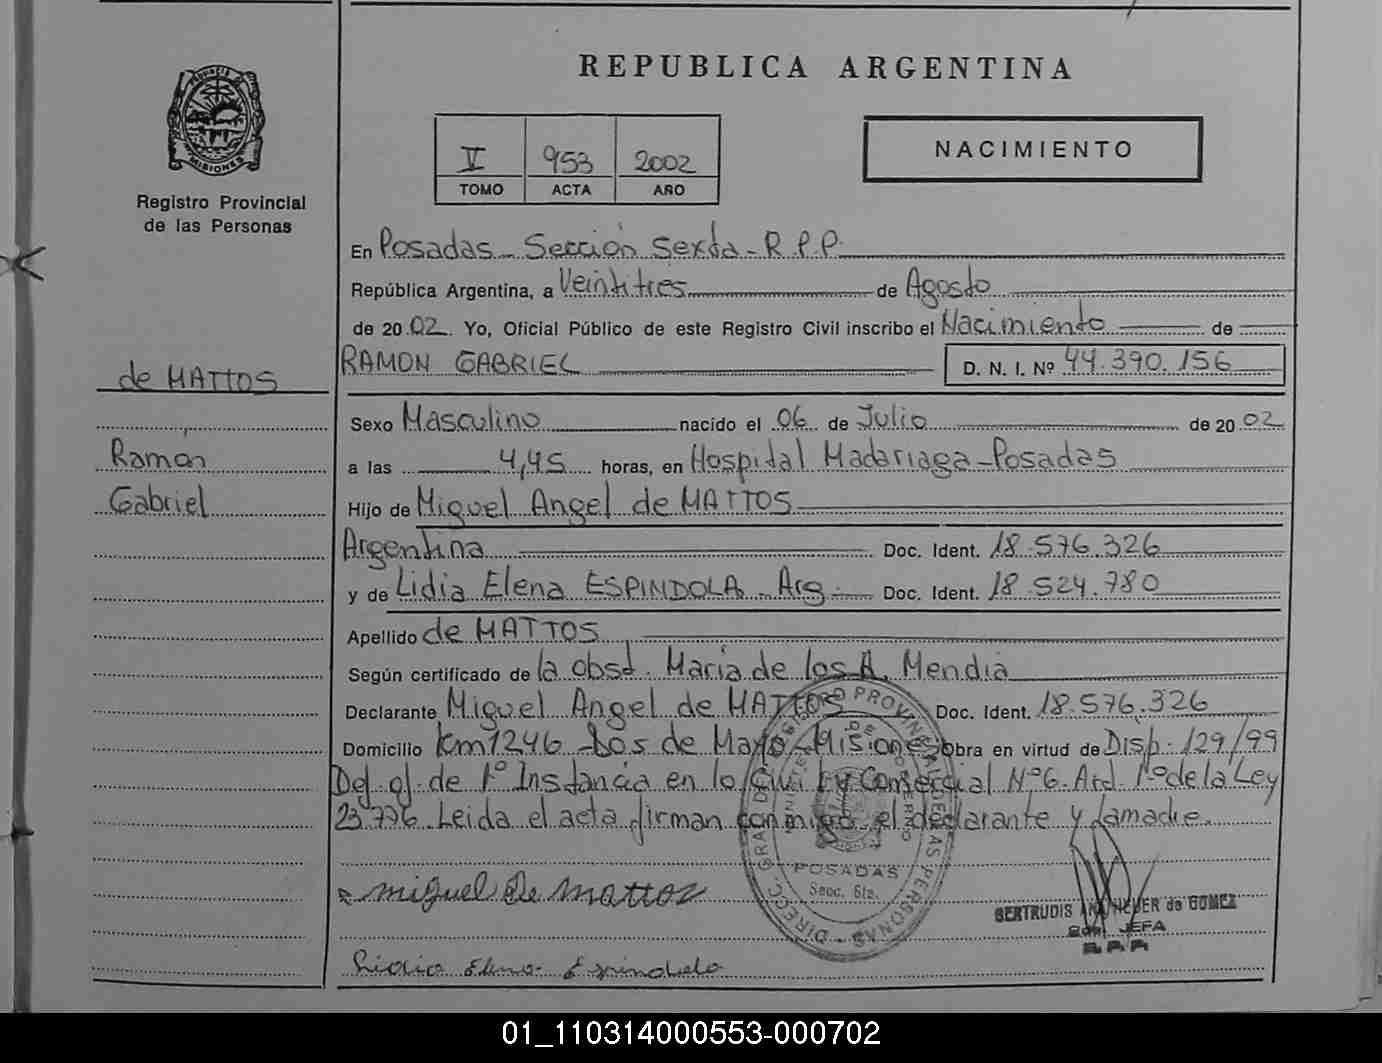 REPUBLICA ARGENTINA
PROVINCIA DE MISIONES
Registro Provincial
de las Personas
V 953 2002
TOMO ACTA AÑO
NACIMIENTO
En Posadas - Sección Sexta - R.P.P.
República Argentina, a Veintitrés de Agosto
de 20 02 . Yo, Oficial Público de este Registro Civil inscribo el Nacimiento de
RAMON GABRIEL D. N. I. Nº 44.390.156
de MATTOS
Ramón
Gabriel
Sexo Masculino nacido el 06 de Julio de 20 02
a las 4,45 horas, en Hospital Madariaga - Posadas
Hijo de Miguel Angel de MATTOS
Argentina Doc. Ident. 18.576.326
y de Lidia Elena ESPINDOLA - Arg. Doc. Ident. 18.524.780
Apellido de MATTOS
Según certificado de la obst. María de los A. Mendia
Declarante Miguel Angel de MATTOS Doc. Ident. 18.576.326
Domicilio km 1246 - Dos de Mayo - Misiones Obra en virtud de Disp. 129/99
Def. of. de 1º Instancia en lo Civil y Comercial Nº 6. Art. 1º de la Ley
23.776. Leida el acta firman conmigo el declarante y la madre.
miguel De mattos
POSADAS
Secc. 6ta.
GERTRUDIS de GOMEZ
JEFA
R.P.P.
Lidia Elena Espindola
01_110314000553-000702